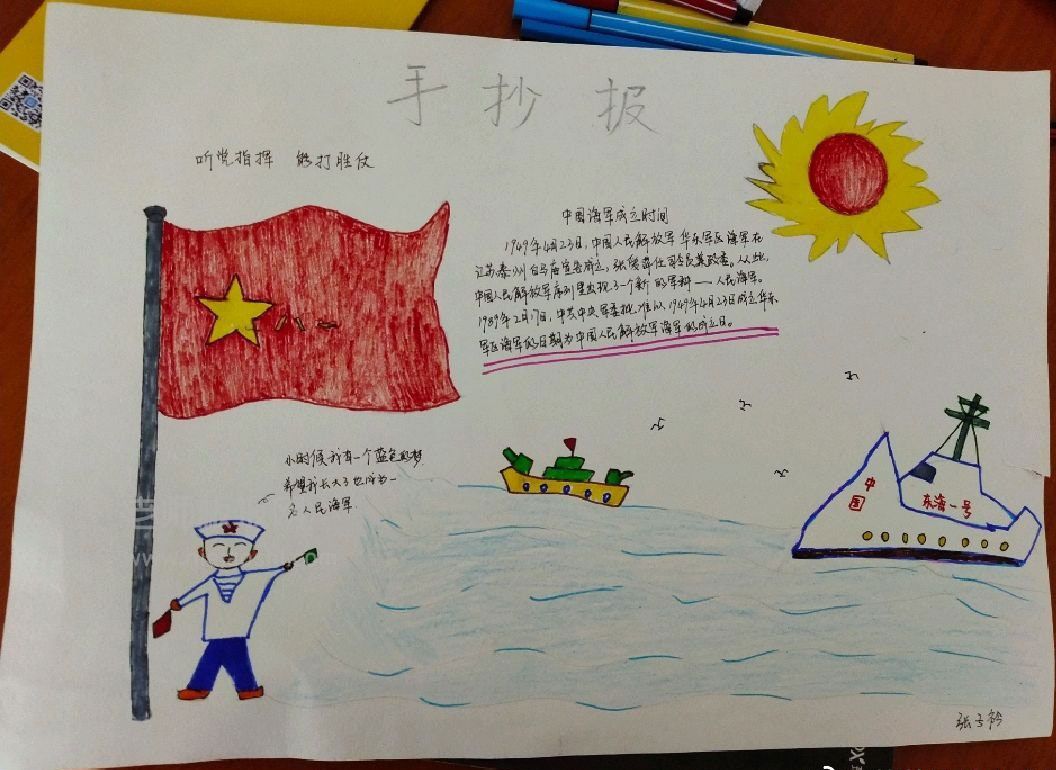 手抄报
听党指挥 能打胜仗
中国海军成立时间
1949年4月23日,中国人民解放军华东军区海军在
江苏泰州白马庙宣告成立,张爱萍任司令员兼政委。从此,
中国人民解放军序列里出现了一个新的军种——人民海军。
1989年2月17日,中共中央军委批准以1949年4月23日成立华东
军区海军的日期为中国人民解放军海军的成立日。
八一
小时候我有一个蓝色的梦,
希望我长大了也成为一
名人民海军.
中
国
东海一号
张子衿